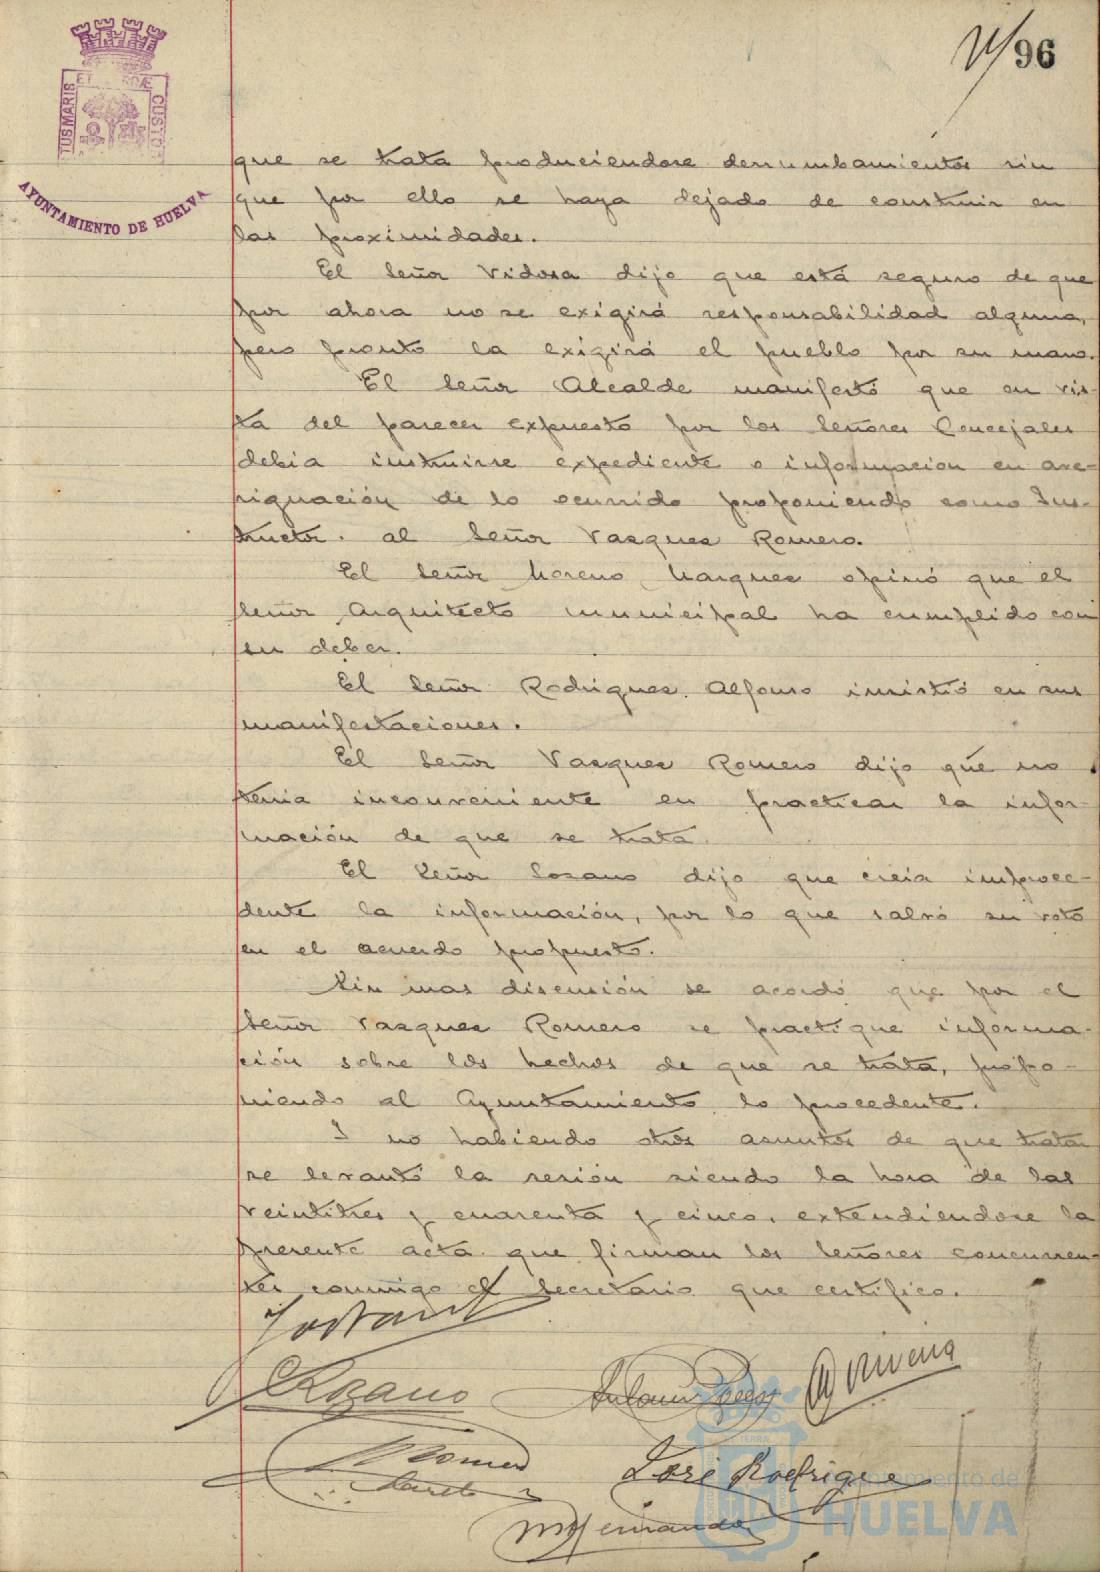 96
TUS MARIS ET TERRÆ CUSTO
AYUNTAMIENTO DE HUELVA
que se trata produciendose derrumbamientos sin
que por ello se haya dejado de construir en
las proximidades.
El Señor Vidosa dijo que está seguro de que
por ahora no se exigirá responsabilidad alguna,
pero pronto la exigirá el pueblo por su mano.
El Señor Alcalde manifestó que en vis-
ta del parecer expuesto por los Señores Concejales
debia instruirse expediente o informacion en ave-
riguación de lo ocurrido proponiendo como Ins-
tructor. al Señor Vasques Romero.
El Señor Moreno Marques opinó que el
Señor Arquitecto municipal ha cumplido con
su deber.
El Señor Rodrigues Alfonso insistió en sus
manifestaciones.
El Señor Vasques Romero dijo que no
tenia inconveniente en practicar la infor-
mación de que se trata.
El Señor Losano dijo que creia improce-
dente la información, por lo que salvó su voto
en el acuerdo propuesto.
Sin mas discusión se acordó que por el
Señor Vasques Romero se practique informa-
ción sobre los hechos de que se trata, propo-
niendo al Ayuntamiento lo procedente.
Y no habiendo otros asuntos de que tratar
se levantó la sesión siendo la hora de las
veintitres y cuarenta y cinco, extendiendose la
presente acta que firman los Señores concurren-
tes conmigo el Secretario que certifico.
Lozano
Antonio
Rivera
Romero
José Rodrigue
M Hernando
Ayuntamiento de
HUELVA